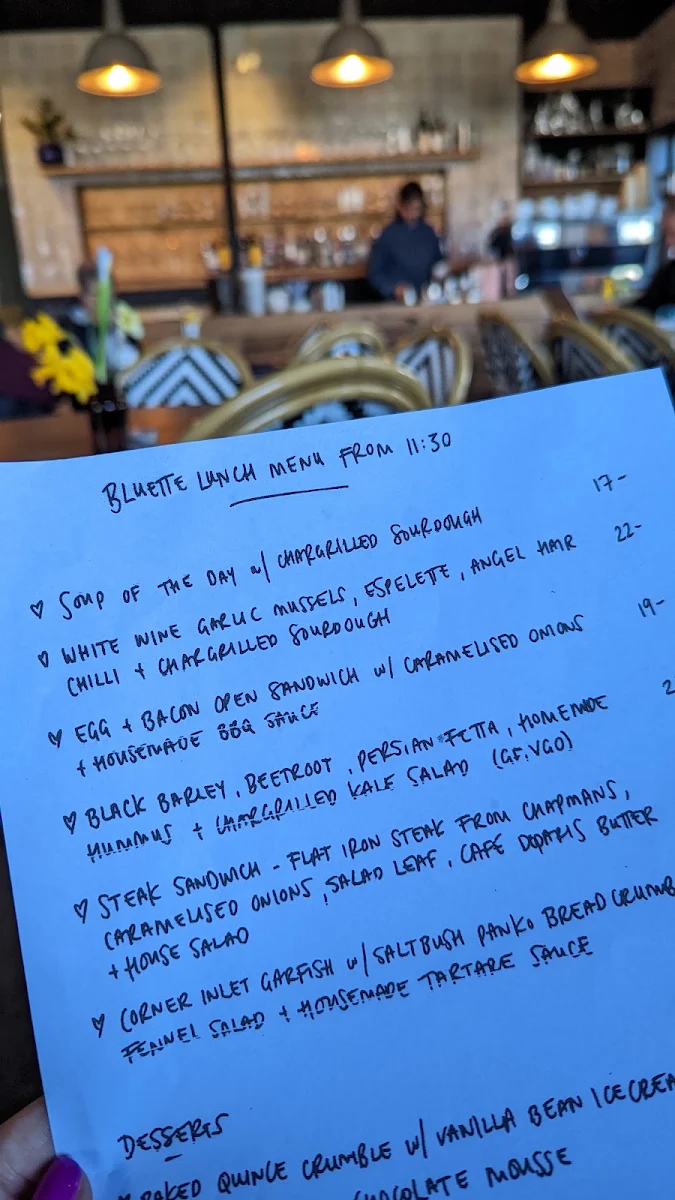 BLUETTE LUNCH MENU FROM 11:30
♡ SOUP OF THE DAY w/ CHARGRILLED SOURDOUGH 17-
♡ WHITE WINE GARLIC MUSSELS, ESPELETTE, ANGEL HAIR 22-
CHILLI + CHARGRILLED SOURDOUGH
♡ EGG + BACON OPEN SANDWICH w/ CARAMELISED ONIONS 19-
+ HOUSEMADE BBQ SAUCE
♡ BLACK BARLEY, BEETROOT, PERSIAN FETTA, HOMEMADE 2
HUMMUS + CHARGRILLED KALE SALAD (GF, VGO)
♡ STEAK SANDWICH - FLAT IRON STEAK FROM CHAPMANS,
CARAMELISED ONIONS, SALAD LEAF, CAFÉ BUTTER
+ HOUSE SALAD
♡ CORNER INLET GARFISH w/ SALTBUSH PANKO BREAD CRUMB
FENNEL SALAD + HOUSEMADE TARTARE SAUCE
DESSERTS
♡ BAKED QUINCE CRUMBLE w/ VANILLA BEAN ICE CREA
CHOCOLATE MOUSSE